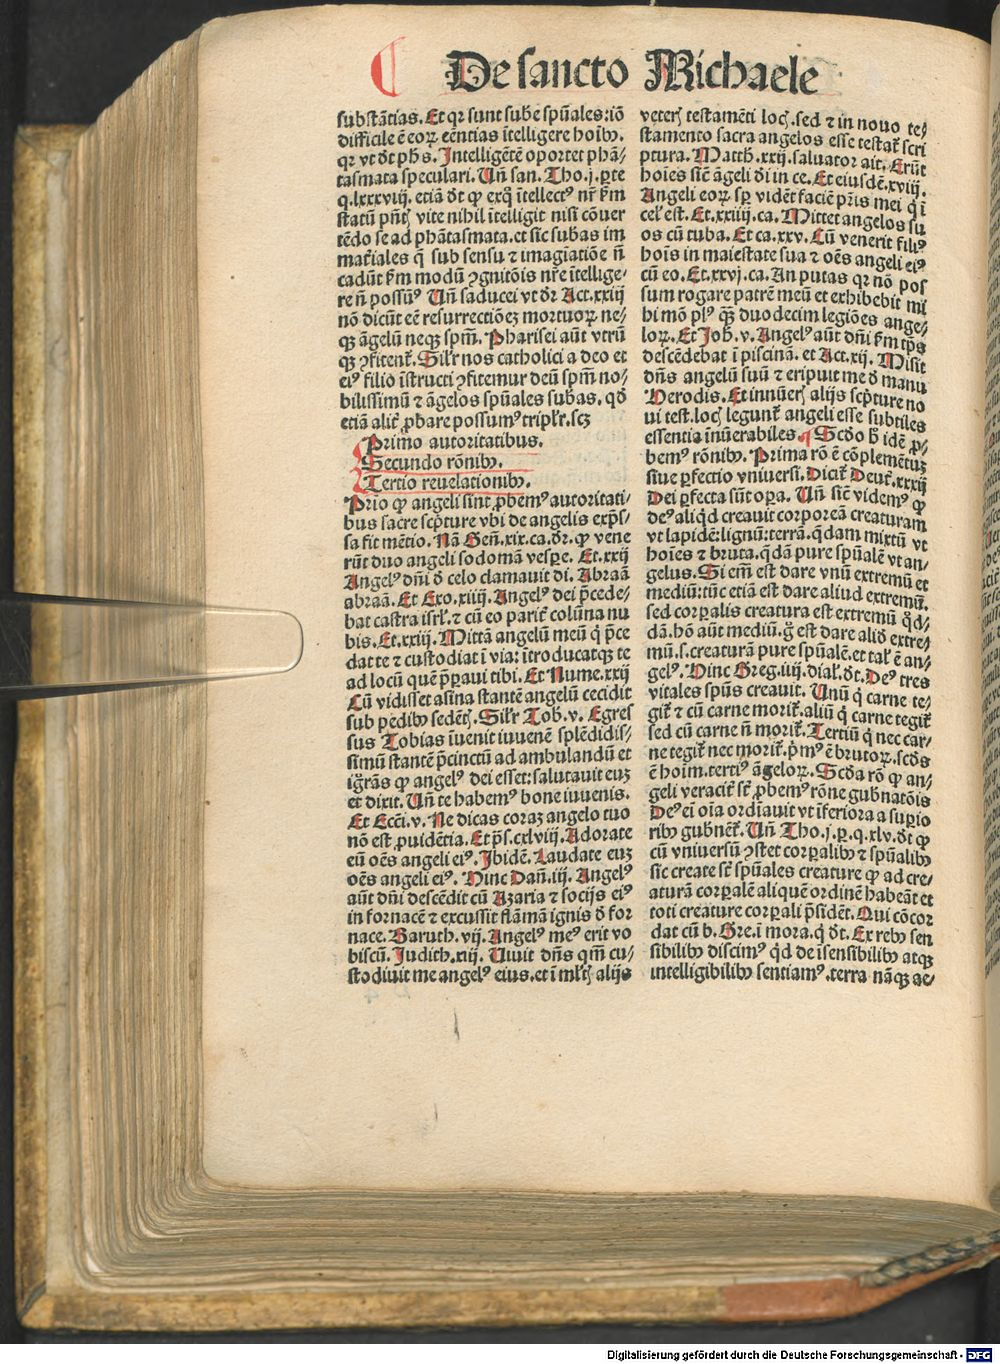 De sancto Michaele
substātias. Et qꝛ sunt sube spūales: iō
difficile ē eoꝝ eētias ītelligere hoībꝫ.
qꝛ vt dt phs. Intelligētē oportet phā/
tasmata speculari. Uñ san. Tho. j. ꝑte
q. lxxxviij. etiā dt ꝙ exq̄ ītellectꝰ nr̄ ẜm
statū pn̄tꝭ vite nihil ītelligit nisi cōuer
tēdo se ad phātasmata. et sic subas im
mat̄iales q̄ sub sensu ⁊ imagīatiōe ñ
cadūt ẜm modū ꝯgnitōis nr̄e ītellige/
re ñ possūꝰ Uñ saducei vt dr̄ Act. xxiij
nō dicūt eē resurrectiōeꝫ mortuoꝝ ne-
qꝫ āgelū neqꝫ spm̄. Pharisei aūt vtrū
qꝫ ꝯfitent̄. Silr̄ nos catholici a deo et
eiꝰ filio īstructi ꝯfitemur deū spm̄ no/
bilissimū ⁊ āgelos spūales subas. qd̄
etiā alit̄ ꝓbare possumꝰ triplr̄. scꝫ
Primo autoritatibus.
Secundo rōnibꝫ.
Tertio reuelationibꝫ.
Prio ꝙ angeli sint ꝓbemꝰ autoritati-
bus sacre scpture vbi de angelis exps/
sa fit mētio. Nā Geñ. xix. ca. dr̄. ꝙ vene
rūt duo angeli sodomā vespe. Et. xxij
Angelꝰ dn̄i d̄ celo clamauit di. Abraā
abraā. Et Exo. xiiij. Angelꝰ dei p̄cede/
bat castra isrl̄. ⁊ cū eo parit̄ colūna nu
bis. Et. xxiij. Mittā angelū meū q̇ p̄ce
dat te ⁊ custodiat ī via: ītroducatqꝫ te
ad locū quē p̄paui tibi. Et Nume. xxij
Cū vidisset asina stantē angelū cecidit
sub pedibꝫ sedētꝭ. Silr̄ Tob. v. Egres
sus Tobias īuenit iuuenē splēdidis/
simū stantē p̄cinctū ad ambulandū et
igr̄as ꝙ angelꝰ dei esset: salutauit euꝫ
et dixit. Uñ te habemꝰ bone iuuenis.
Et Ecc̄i. v. Ne dicas coraꝫ angelo tuo
nō est ꝓuidētia. Et ps̄. cxlviij. Adorate
eū oēs angeli eiꝰ. Ibidē. Laudate euꝫ
oēs angeli eiꝰ. Hinc Dañ. iij. Angelꝰ
aūt dn̄i descēdit cū Azaria ⁊ socijs eiꝰ
in fornacē ⁊ excussit flāmā ignis d̄ for
nace. Baruch. vij. Angelꝰ meꝰ erit vo
biscū. Judith. xiij. Uiuit dn̄s qm̄ cu/
stodiuit me angelꝰ eius. et ī ml̄tꝭ alijs
veterꝭ testamēti locꝭ. sed ⁊ in nouo te/
stamento sacra angelos esse testat̄ scri
ptura. Matth. xxij. saluator ait. Erūt
hoīes sic̄ āgeli dī in ce. Et eiusdē. xviij.
Angeli eoꝝ sꝑ vidēt faciē pr̄is mei q̇ ī
cel̄ est. Et. xxiiij. ca. Mittet angelos su
os cū tuba. Et ca. xxv. Cū venerit filiꝰ
hoīs in maiestate sua ⁊ oēs angeli eiꝰ
cū eo. Et. xxvj. ca. An putas qꝛ nō pos
sum rogare patrē meū et exhibebit mi
hi mō plꝰ qꝫ duodecim legiōes ange/
loꝝ. Et Joh. v. Angelꝰ aūt dn̄i ẜm tp̄s
descēdebat ī piscinā. et Act. xij. Misit
dn̄s angelū suū ⁊ eripuit me d̄ manu
Herodis. Et innūerꝭ alijs scpture no
ui test. locꝭ legunt̄ angeli esse subtiles
essentia īnūerabiles. Scd̄o h̄ idē ꝓ/
bemꝰ rōnibꝫ. Prima rō ē cōplemētuꝫ
siue ꝑfectio vniuersi. Dicit̄ Deut̄. xxxij
Dei ꝑfecta sūt oꝑa. Uñ sic̄ videmꝰ ꝙ
deꝰ aliqd̄ creauit corporeā creaturam
vt lapidē: lignū: terrā. q̄dam mixtū vt
hoīes ⁊ bruta. q̄dā pure spūalē vt an/
gelus. Si em̄ est dare vnū extremū et
mediū: tūc etiā est dare aliud extremū.
sed corꝑalis creatura est extremū qd̄/
dā. hō aūt mediū. g̊ est dare aliō extre/
mū. s. creaturā pure spūalē. et tal̄ ē an/
gelꝰ. Hinc Greg. iiij. dial̄. dt. Deꝰ tres
vitales spūs creauit. Unū q̇ carne te/
git̄ ⁊ cū carne morit̄. aliū q̇ carne tegit̄
sed cū carne ñ morit̄. Tertiū q̇ nec car/
ne tegit̄ nec morit̄. p̄mꝰ ē brutoꝝ. scd̄s
ē hoīm. tertiꝰ āgeloꝝ. Scd̄a rō ꝙ an/
geli veracit̄ st̄ ꝓbemꝰ rōne gubnatōis
Deꝰ ei oīa ordīauit vt īferiora a supio
ribꝫ gubnēt̄. Uñ Tho. j. p. q. xlv. dt ꝙ
cū vniuersū ꝯstet corꝑalibꝫ ⁊ spūalibꝫ
sic create st̄ spūales creature ꝙ ad cre/
aturā corꝑalē aliquē ordinē habeāt et
toti creature corꝑali p̄sidēt. Qui cōcor
dat cū b. Gre. ī mora. q̇ dt. Ex rebꝫ sen
sibilibꝫ discimꝰ qd̄ de īsensibilibꝫ atqꝫ
intelligibilibꝫ sentiamꝰ. terra nāqꝫ ae/
Digitalisierung gefördert durch die Deutsche Forschungsgemeinschaft - DFG